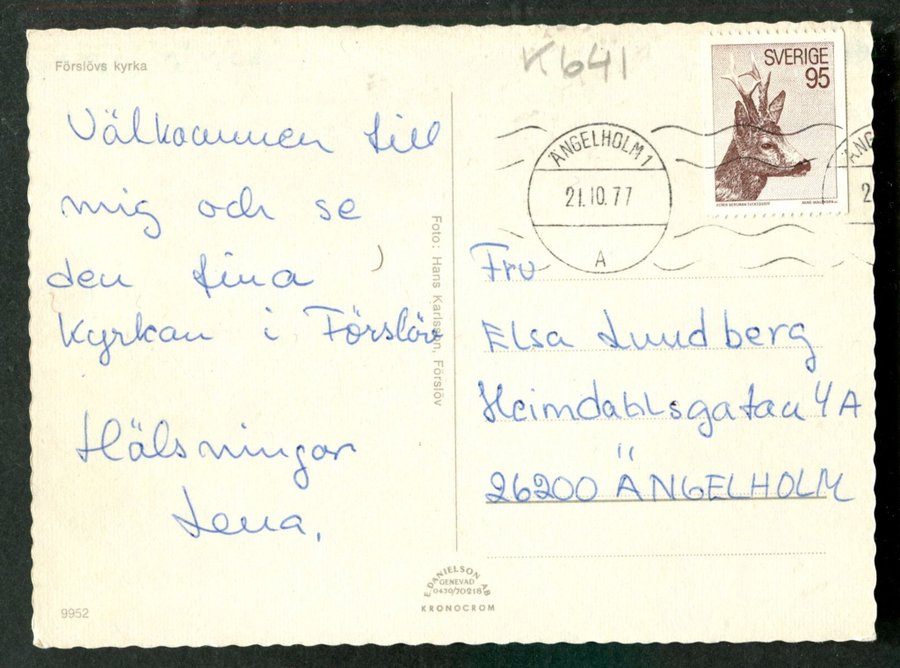 Förslövs kyrka
Välkommen till
mig och se
den fina
kyrkan i Förslöv
Hälsningar
Lena.
9952
Foto: Hans Karlsson, Förslöv
E. DANIELSON AB
GENEVAD
0430/70218
KRONOCROM
K641
SVERIGE
95
ÄNGELHOLM 1
21.10.77
A
ÄNG
2
Fru
Elsa Lundberg
Heimdahlsgatan 4A
26200 ÄNGELHOLM